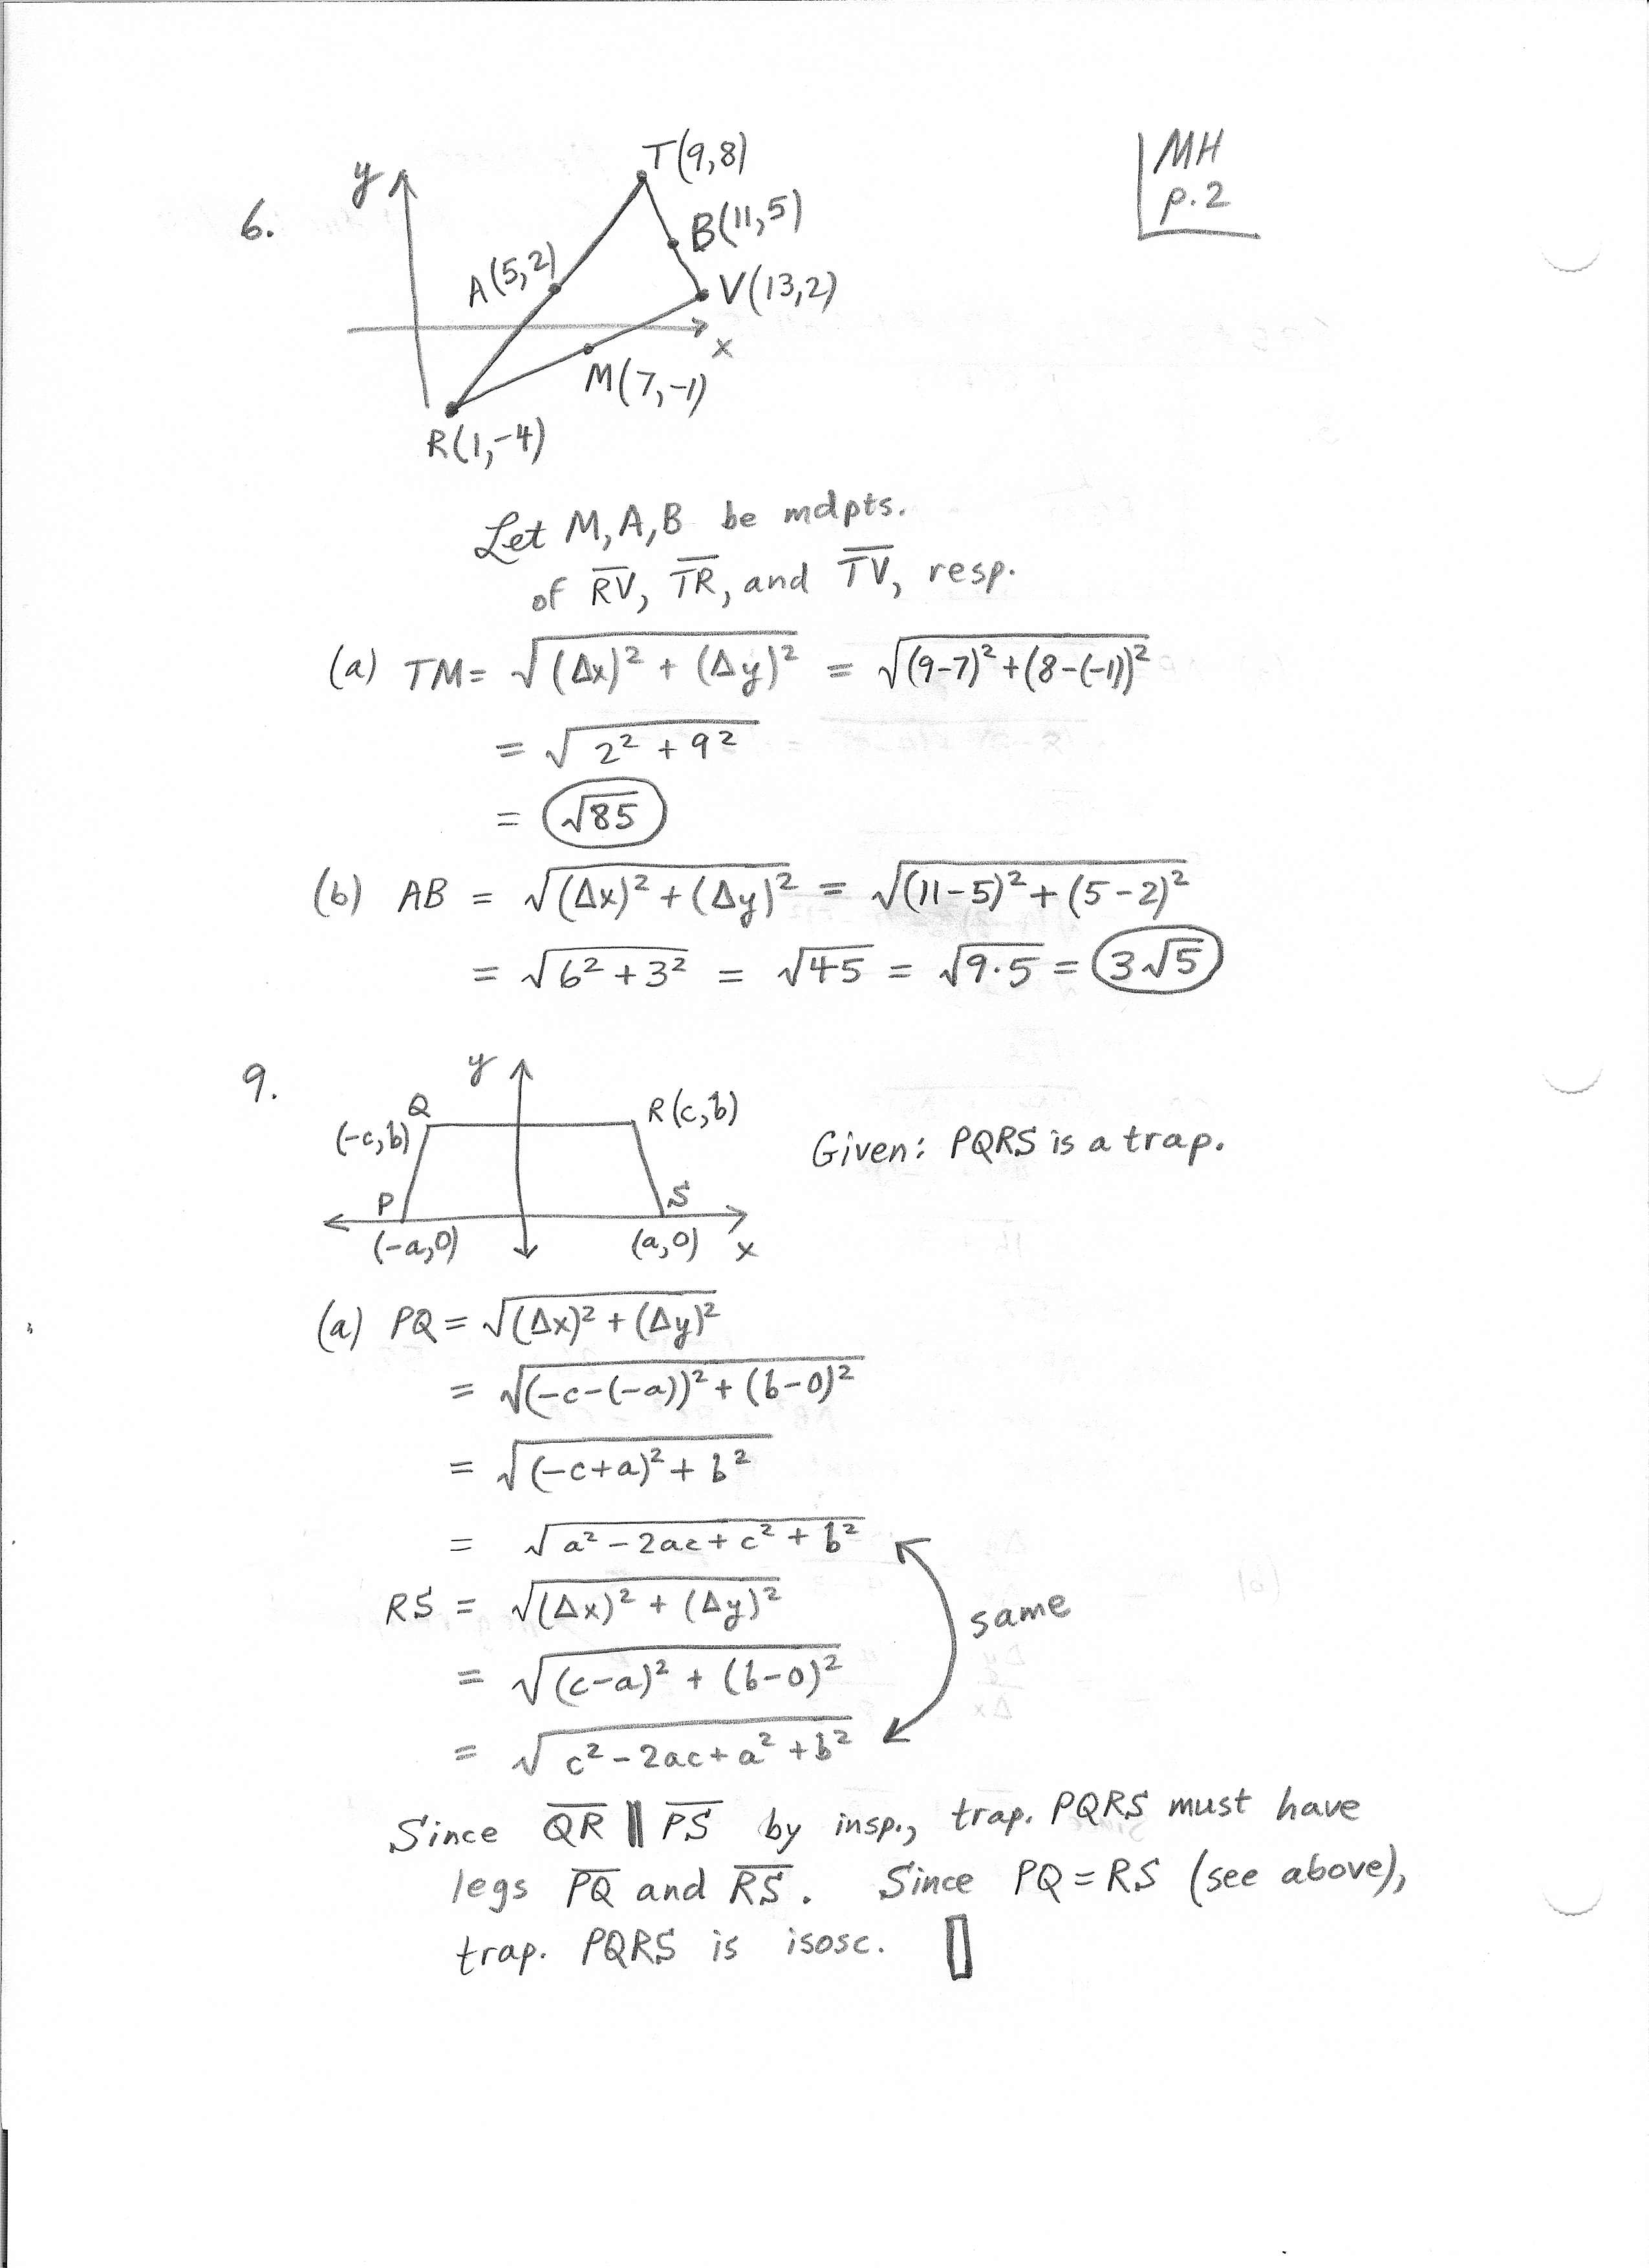 MH
p.2
6.
y
T(9,8)
B(11,5)
A(5,2)
V(13,2)
x
M(7,-1)
R(1,-4)
Let M,A,B be mdpts.
of R̅V̅, T̅R̅, and T̅V̅, resp.
(a) TM= √(Δx)² + (Δy)² = √(9-7)²+(8-(-1))²
= √2² + 9²
= √85
(b) AB = √(Δx)²+(Δy)² = √(11-5)²+(5-2)²
= √6²+3² = √45 = √9·5 = 3√5
9.
y
Q
R(c,b)
(-c,b)
Given: PQRS is a trap.
P
S
(-a,0)
(a,0)
x
(a) PQ = √(Δx)² + (Δy)²
= √(-c-(-a))² + (b-0)²
= √(-c+a)² + b²
= √a² - 2ac + c² + b²
same
RS = √(Δx)² + (Δy)²
= √(c-a)² + (b-0)²
= √c² - 2ac + a² + b²
Since Q̅R̅ ∥ P̅S̅ by insp., trap. PQRS must have
legs P̅Q̅ and R̅S̅. Since PQ = RS (see above),
trap. PQRS is isosc. ▯